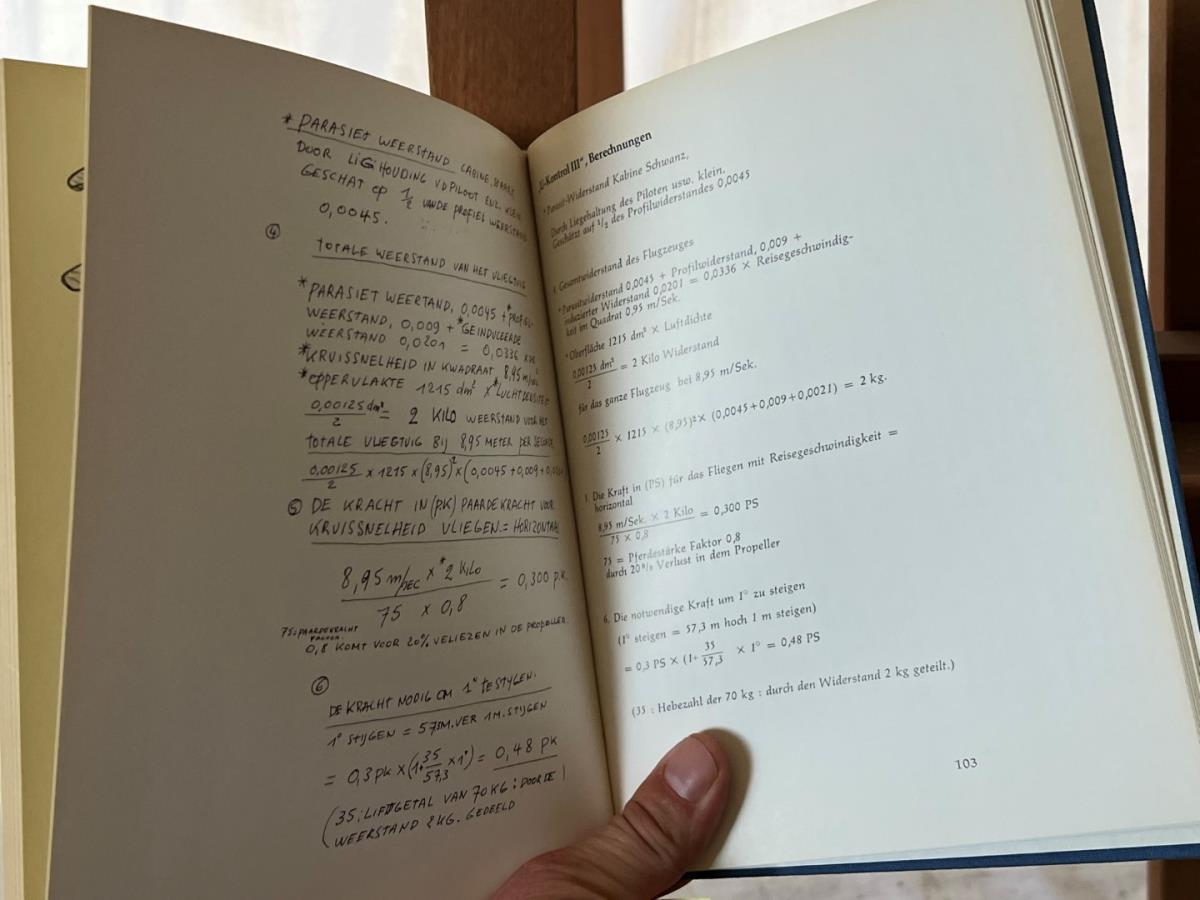 * PARASIET WEERSTAND CABINE,
DOOR LIGHOUDING VD PILOOT ENZ. KLEIN
GESCHAT OP 1/2 VAN DE PROFIEL WEERSTAND
0,0045.
④ TOTALE WEERSTAND VAN HET VLIEGTUIG
* PARASIET WEERTAND, 0,0045 + * PROFIEL
WEERSTAND, 0,009 + * GEINDUCEERDE
WEERSTAND 0,0201 = 0,0336 x DE
* KRUISSNELHEID IN KWADRAAT 8,95 m/sec
* OPPERVLAKTE 1215 dm² x * LUCHTDENSITEIT
0,00125 dm³/2 = 2 KILO WEERSTAND VOOR HET
TOTALE VLIEGTUIG BIJ 8,95 METER PER SECONDE
0,00125/2 x 1215 x (8,95)² x (0,0045 + 0,009 +
⑤ DE KRACHT IN (PK) PAARDEKRACHT VOOR
KRUISSNELHEID VLIEGEN. = HORIZONTAAL
8,95 m/SEC x * 2 KILO / 75 x 0,8 = 0,300 p.k.
75 = PAARDEKRACHT
FACTOR.
0,8 KOMT VOOR 20% VELIEZEN IN DE PROPELLER.
⑥
DE KRACHT NODIG OM 1° TE STYGEN.
1° STIJGEN = 573M. VER 1M. STIJGEN
= 0,3 pk x (1+ 35/57,3 x 1°) = 0,48 pk
(35: LIFTGETAL VAN 70 KG : DOOR DE )
WEERSTAND 2 KG. GEDEELD
„U-Kontrol III“, Berechnungen
* Parasit-Widerstand Kabine Schwanz,
Durch Liegehaltung des Piloten usw. klein.
Geschätzt auf 1/2 des Profilwiderstandes 0,0045
4. Gesamtwiderstand des Flugzeuges
* Parasitwiderstand 0,0045 + Profilwiderstand, 0,009 +
induzierter Widerstand 0,0201 = 0,0336 × Reisegeschwindig-
keit im Quadrat 0,95 m/Sek.
* Oberfläche 1215 dm² × Luftdichte
0,00125 dm³/2 = 2 Kilo Widerstand
für das ganze Flugzeug bei 8,95 m/Sek.
0,00125/2 × 1215 × (8,95)² × (0,0045 + 0,009 + 0,0021) = 2 kg.
Die Kraft in (PS) für das Fliegen mit Reisegeschwindigkeit =
horizontal
8,95 m/Sek. × 2 Kilo / 75 × 0,8 = 0,300 PS
75 = Pferdestärke Faktor 0,8
durch 20% Verlust in dem Propeller
6. Die notwendige Kraft um 1° zu steigen
(1° steigen = 57,3 m hoch 1 m steigen)
= 0,3 PS × (1+ 35/57,3 × 1° = 0,48 PS
(35 : Hebezahl der 70 kg : durch den Widerstand 2 kg geteilt.)
103